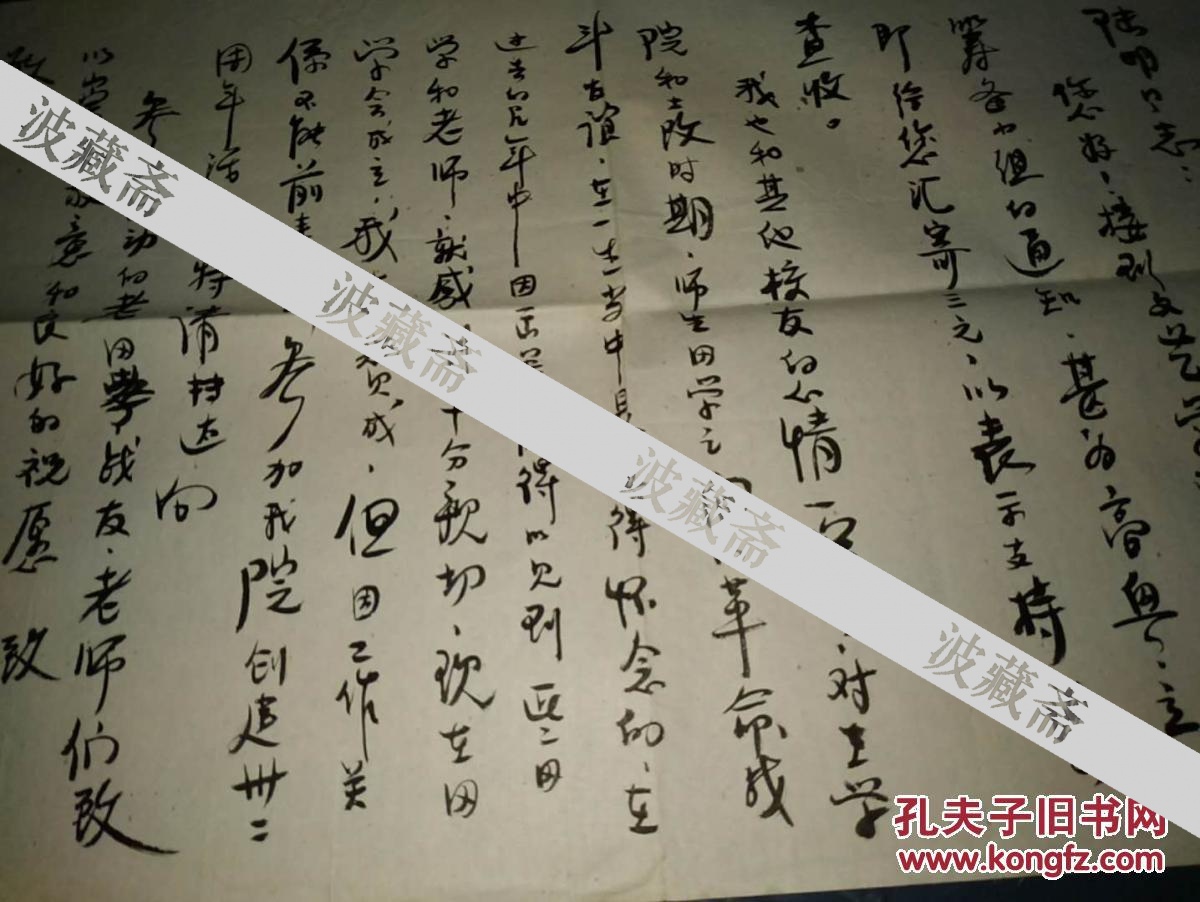 您好！接到文艺学
筹备小组的通知，甚为高兴，立
即给您汇寄三元，以表示支持
查收。
我也和其他校友的心情一
对在学
院和土改时期，师生同学之
革命战
斗友谊，在一生当中
得怀念的，在
过去的几年中因
得以见到
同
学和老师，就感
十分亲切，现在同
学会成立，我
赞成，但因工作关
系不能前
参加我院创建卅二
周年活
特请转达向
参
动的老同学战友，老师们致
以
敬意和良好的祝愿
致
波藏斋
波藏斋
波藏斋
波藏斋
波藏斋
孔夫子旧书网
www.kongfz.com